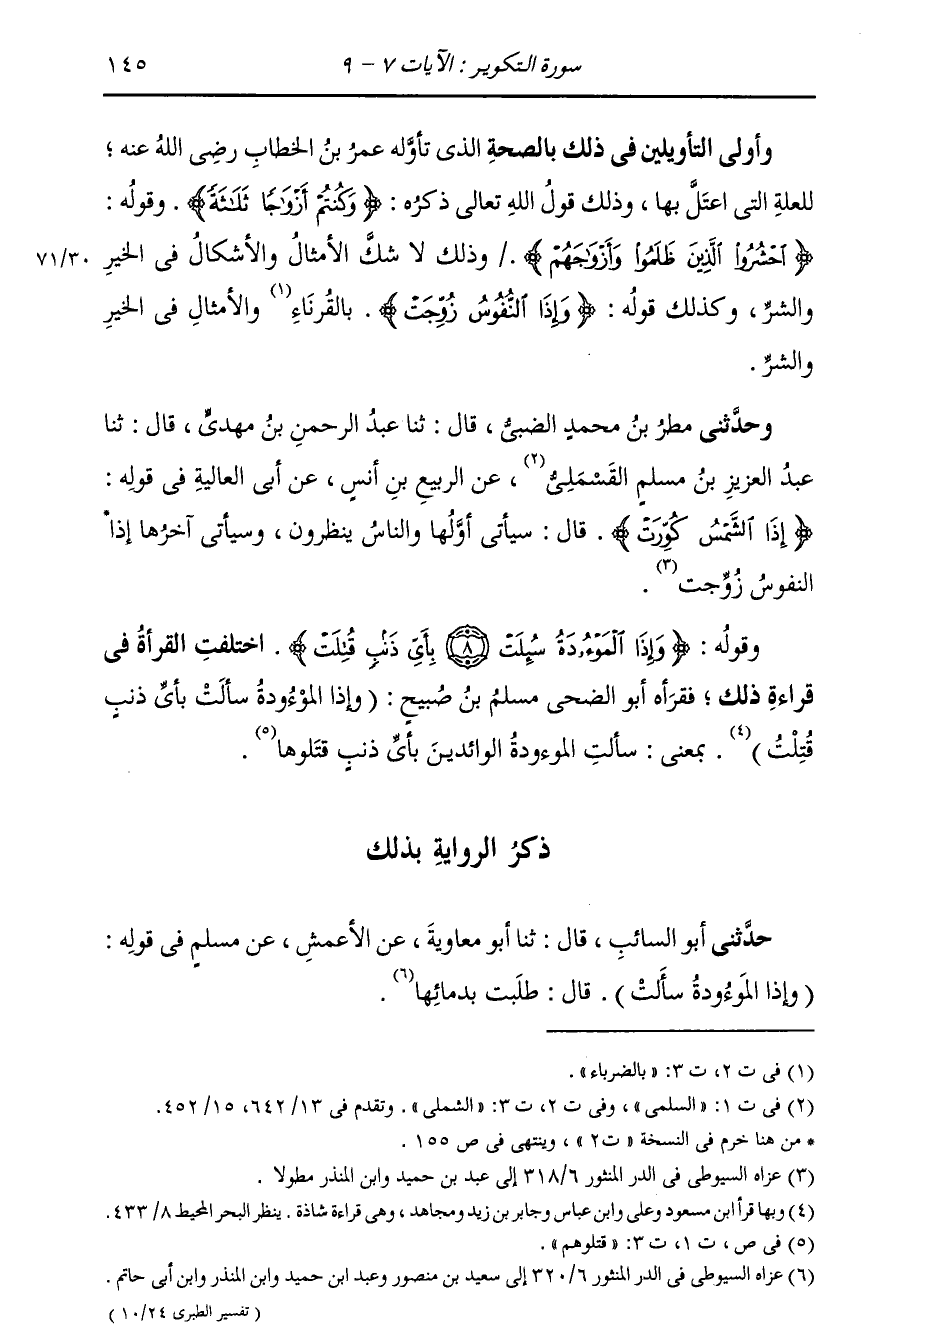 سورة التكوير : الآيات ٧ - ٩ ١٤٥
وأولى التأويلين فى ذلك بالصحةِ الذى تأوَّله عمرُ بنُ الخطابِ رضِى اللهُ عنه ؛
للعلةِ التى اعتَلَّ بها ، وذلك قولُ اللهِ تعالى ذكرُه : ﴿ وَكُنتُمْ أَزْوَٰجًا ثَلَٰثَةً ﴾ . وقولُه :
﴿ ٱحْشُرُوا۟ ٱلَّذِينَ ظَلَمُوا۟ وَأَزْوَٰجَهُمْ ﴾ ./ وذلك لا شكَّ الأمثالُ والأشكالُ فى الخيرِ ٧١/٣٠
والشرِّ ، وكذلك قولُه : ﴿ وَإِذَا ٱلنُّفُوسُ زُوِّجَتْ ﴾ . بالقُرنَاءِ (١) والأمثالِ فى الخيرِ
والشرِّ .
وحدَّثنى مطرُ بنُ محمدٍ الضبىُّ ، قال : ثنا عبدُ الرحمنِ بنُ مهدىٍّ ، قال : ثنا
عبدُ العزيزِ بنُ مسلمٍ القَسْمَلِىُّ (٢) ، عن الربيعِ بنِ أنسٍ ، عن أبى العاليةِ فى قولِه :
﴿ إِذَا ٱلشَّمْسُ كُوِّرَتْ ﴾ . قال : سيأتى أوَّلُها والناسُ ينظرون ، وسيأتى آخرُها إذا*
النفوسُ زُوِّجت (٣) .
وقولُه : ﴿ وَإِذَا ٱلْمَوْءُۥدَةُ سُئِلَتْ ٨ بِأَىِّ ذَنۢبٍ قُتِلَتْ ﴾ . اختلفتِ القرأةُ فى
قراءةِ ذلك ؛ فقرَأه أبو الضحى مسلمُ بنُ صُبيحٍ : ( وإذا الموْءُودةُ سألَتْ بأىِّ ذنبٍ
قُتِلْتُ ) (٤) . بمعنى : سألتِ الموءودةُ الوائدينَ بأىِّ ذنبٍ قتَلوها (٥) .
ذكرُ الروايةِ بذلك
حدَّثنى أبو السائبِ ، قال : ثنا أبو معاويةَ ، عن الأعمشِ ، عن مسلمٍ فى قولِه :
( وإذا المَوءُودةُ سأَلتْ ) . قال : طلَبت بدمائِها (٦) .
(١) فى ت ٢، ت ٣: « بالضرباء » .
(٢) فى ت ١: « السلمى » ، وفى ت ٢، ت ٣: « الشملى » . وتقدم فى ١٣/ ٦٤٢، ١٥/ ٤٥٢.
* من هنا خرم فى النسخة « ت٢ » ، وينتهى فى ص ١٥٥ .
(٣) عزاه السيوطى فى الدر المنثور ٣١٨/٦ إلى عبد بن حميد وابن المنذر مطولا .
(٤) وبها قرأ ابن مسعود وعلى وابن عباس وجابر بن زيد ومجاهد ، وهى قراءة شاذة . ينظر البحر المحيط ٨/ ٤٣٣.
(٥) فى ص ، ت ١، ت ٣: « قتلوهم » .
(٦) عزاه السيوطى فى الدر المنثور ٣٢٠/٦ إلى سعيد بن منصور وعبد ابن حميد وابن المنذر وابن أبى حاتم .
( تفسير الطبرى ١٠/٢٤ )